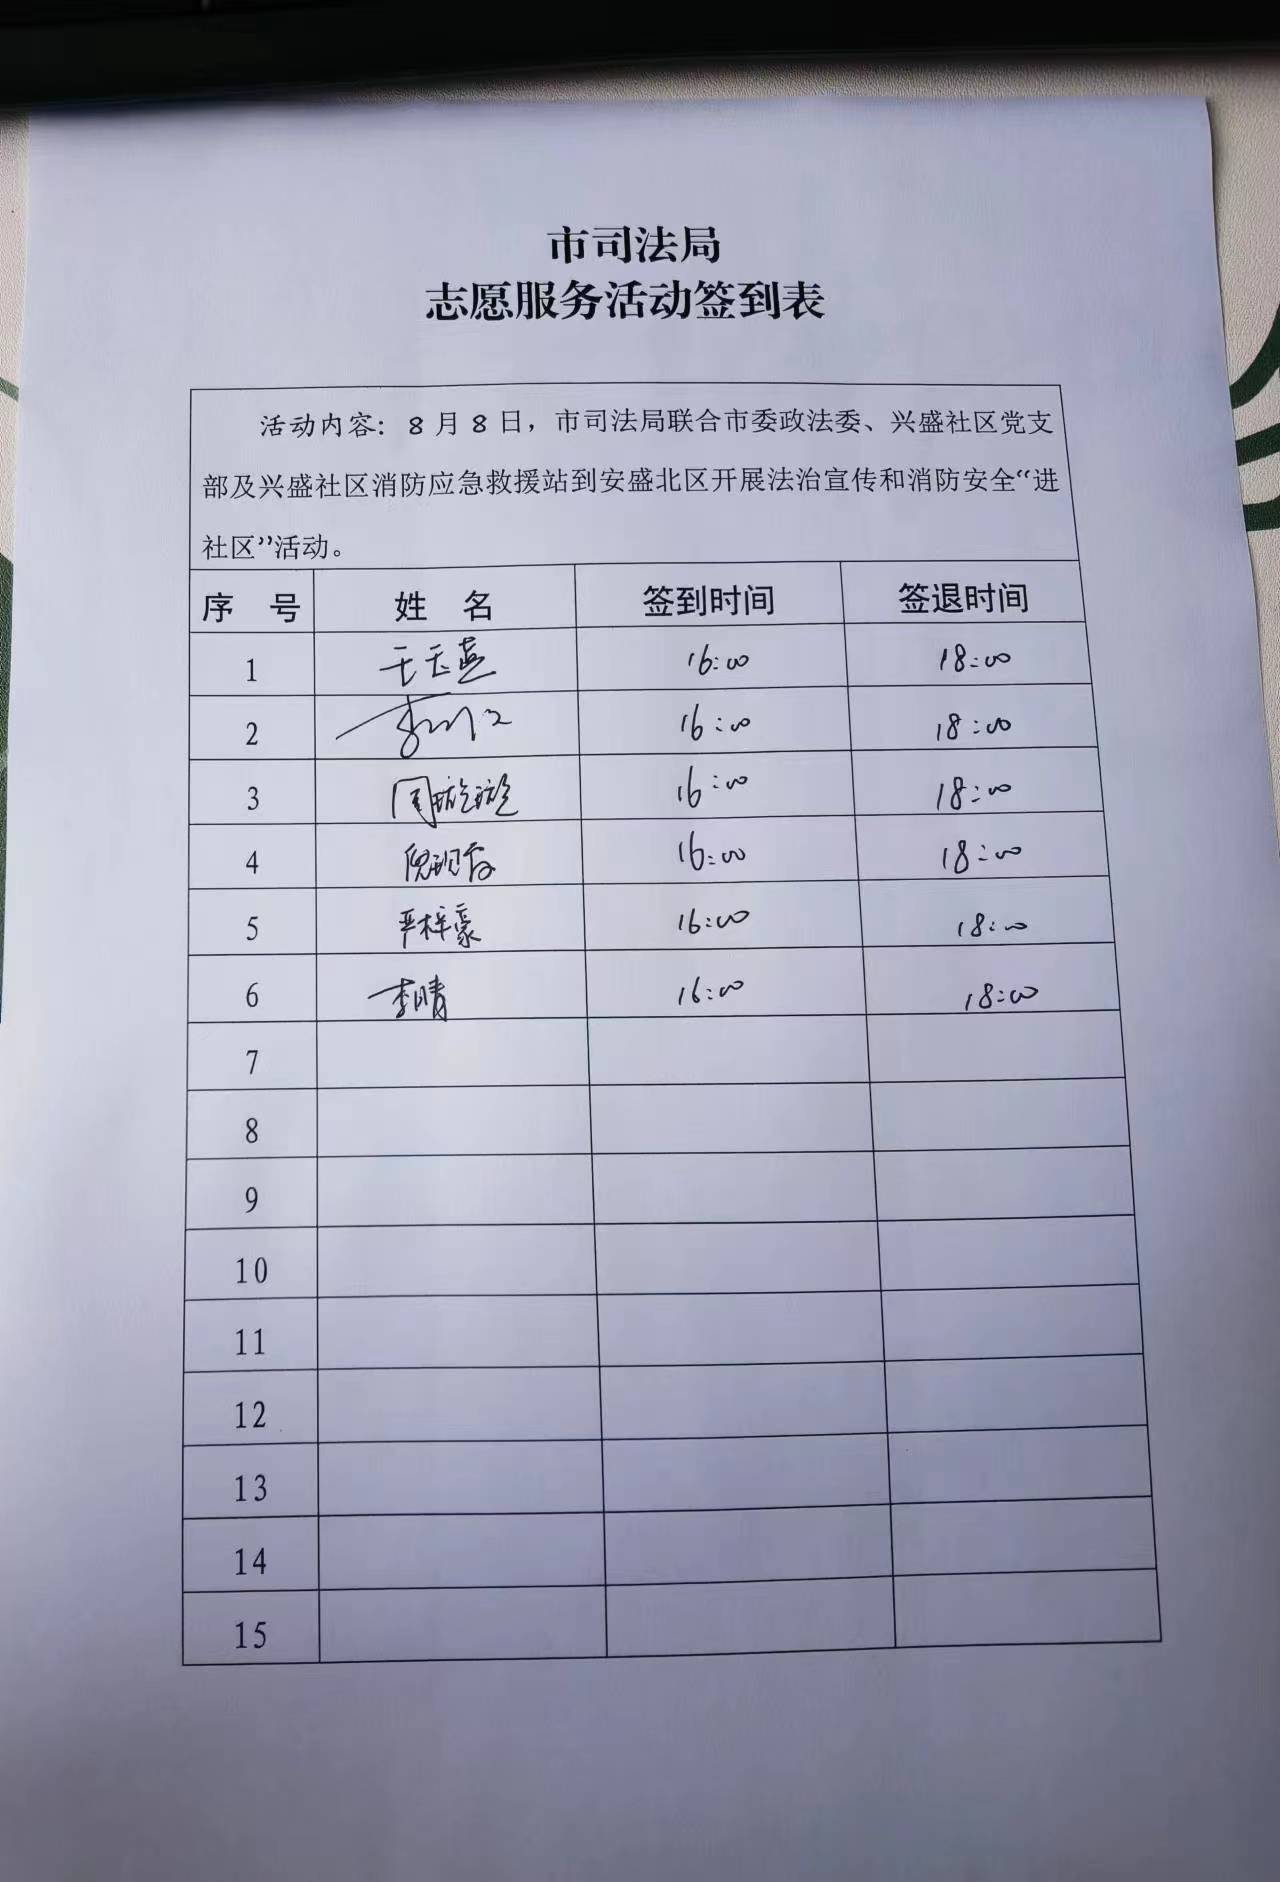 市司法局
志愿服务活动签到表
活动内容：8月8日，市司法局联合市委政法委、兴盛社区党支
部及兴盛社区消防应急救援站到安盛北区开展法治宣传和消防安全“进
社区”活动。
序 号 姓 名 签到时间 签退时间
1 王玉燕 16:00 18:00
2 16:00 18:00
3 周璇璇 16:00 18:00
4 16:00 18:00
5 严梓豪 16:00 18:00
6 李晴 16:00 18:00
7
8
9
10
11
12
13
14
15